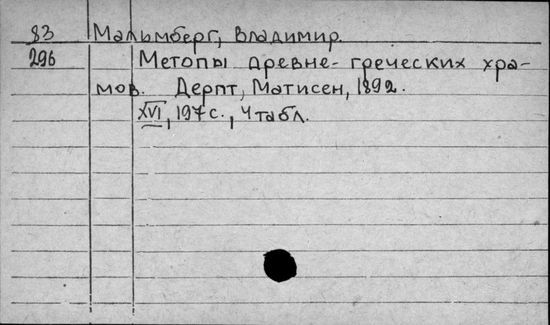 83 Мальмберг, Владимир.
296 Метопы древне-греческих хра-
мов. Дерпт, Матисен, 1892.
XVI, 197 с., 4 табл.